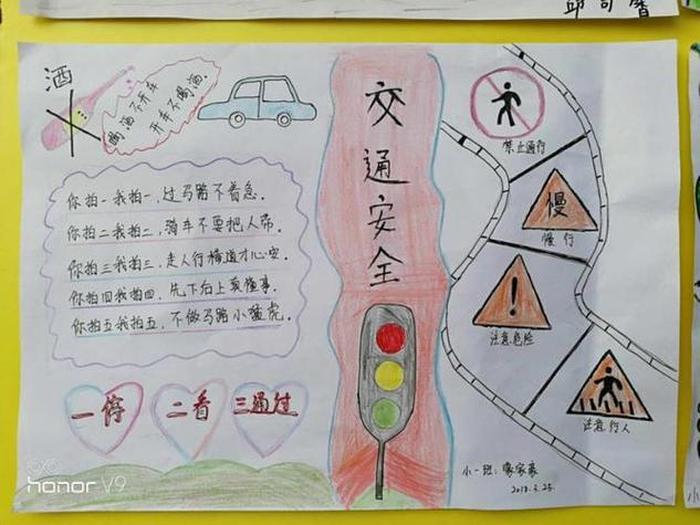 酒
喝酒不开车
开车不喝酒.
你拍一我拍一,过马路不着急.
你拍二我拍二,骑车不要把人带.
你拍三我拍三,走人行横道才心安.
你拍四我拍四,先下后上真懂事.
你拍五我拍五,不做马路小猛虎.
一停 二看 三通过
交通安全
禁止通行
慢
慢行
!
注意危险
注意行人
小一班:
2018.3.25.
honor V9